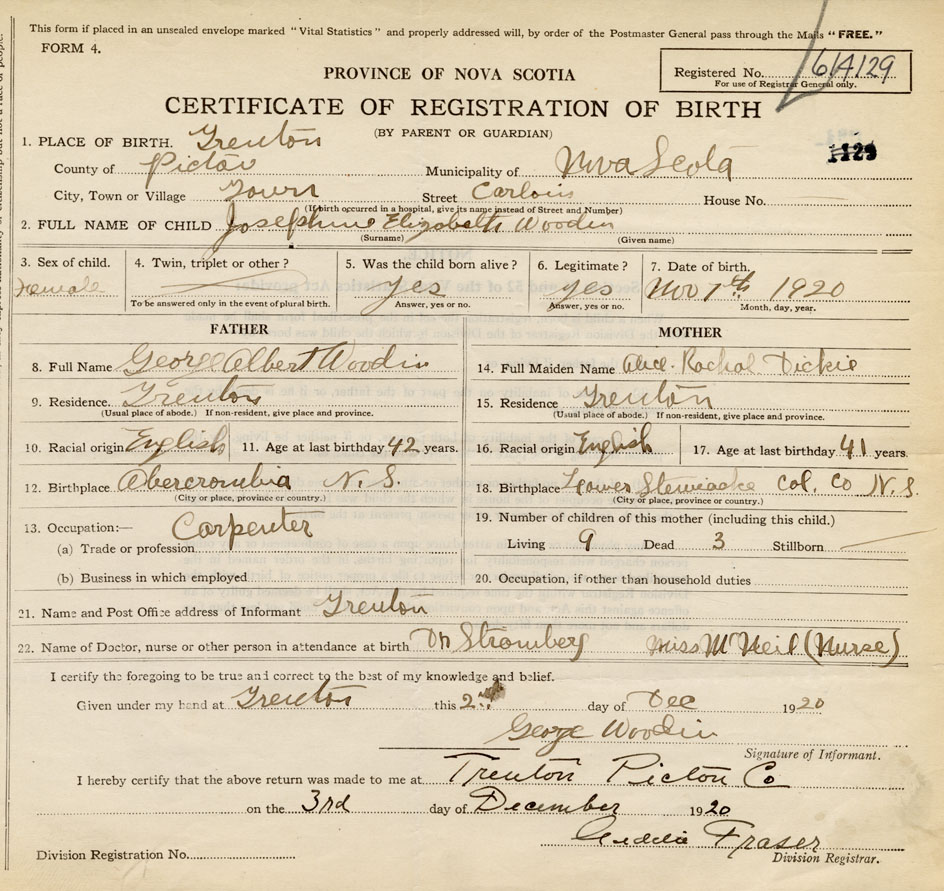 This form if placed in an unsealed envelope marked "Vital Statistics" and properly addressed will, by order of the Postmaster General pass through the Mails "FREE."
FORM 4.
PROVINCE OF NOVA SCOTIA
Registered No. 614129
For use of Registrar General only.
CERTIFICATE OF REGISTRATION OF BIRTH
(BY PARENT OR GUARDIAN)
1. PLACE OF BIRTH. Trenton
1129
County of Pictou Municipality of Nova Scota
City, Town or Village Town Street House No.
(If birth occurred in a hospital, give its name instead of Street and Number)
2. FULL NAME OF CHILD Josephine Elizabeth Woodin
(Surname) (Given name)
3. Sex of child. 4. Twin, triplet or other? 5. Was the child born alive? 6. Legitimate? 7. Date of birth.
Female yes yes Nov 7th 1920
To be answered only in the event of plural birth. Answer, yes or no. Answer, yes or no. Month, day, year.
FATHER MOTHER
8. Full Name George Albert Woodin 14. Full Maiden Name Alice Rachal Dickie
9. Residence. Trenton 15. Residence Trenton
(Usual place of abode.) If non-resident, give place and province. (Usual place of abode.) If non-resident, give place and province.
10. Racial origin English 11. Age at last birthday 42 years. 16. Racial origin English 17. Age at last birthday 41 years.
12. Birthplace Abercrombia N. S. 18. Birthplace Lower Stewiacke Col. Co N. S.
(City or place, province or country.) (City or place, province or country.)
13. Occupation:— Carpenter 19. Number of children of this mother (including this child.)
(a) Trade or profession Living 9 Dead 3 Stillborn
(b) Business in which employed 20. Occupation, if other than household duties
21. Name and Post Office address of Informant Trenton
22. Name of Doctor, nurse or other person in attendance at birth Dr Stromberg Miss McNeil (Nurse)
I certify the foregoing to be true and correct to the best of my knowledge and belief.
Given under my hand at Trenton this 2 day of Dec 1920
George Woodin
Signature of Informant.
I hereby certify that the above return was made to me at Trenton Picton Co
on the 3rd day of December 1920
Fraser
Division Registration No. Division Registrar.